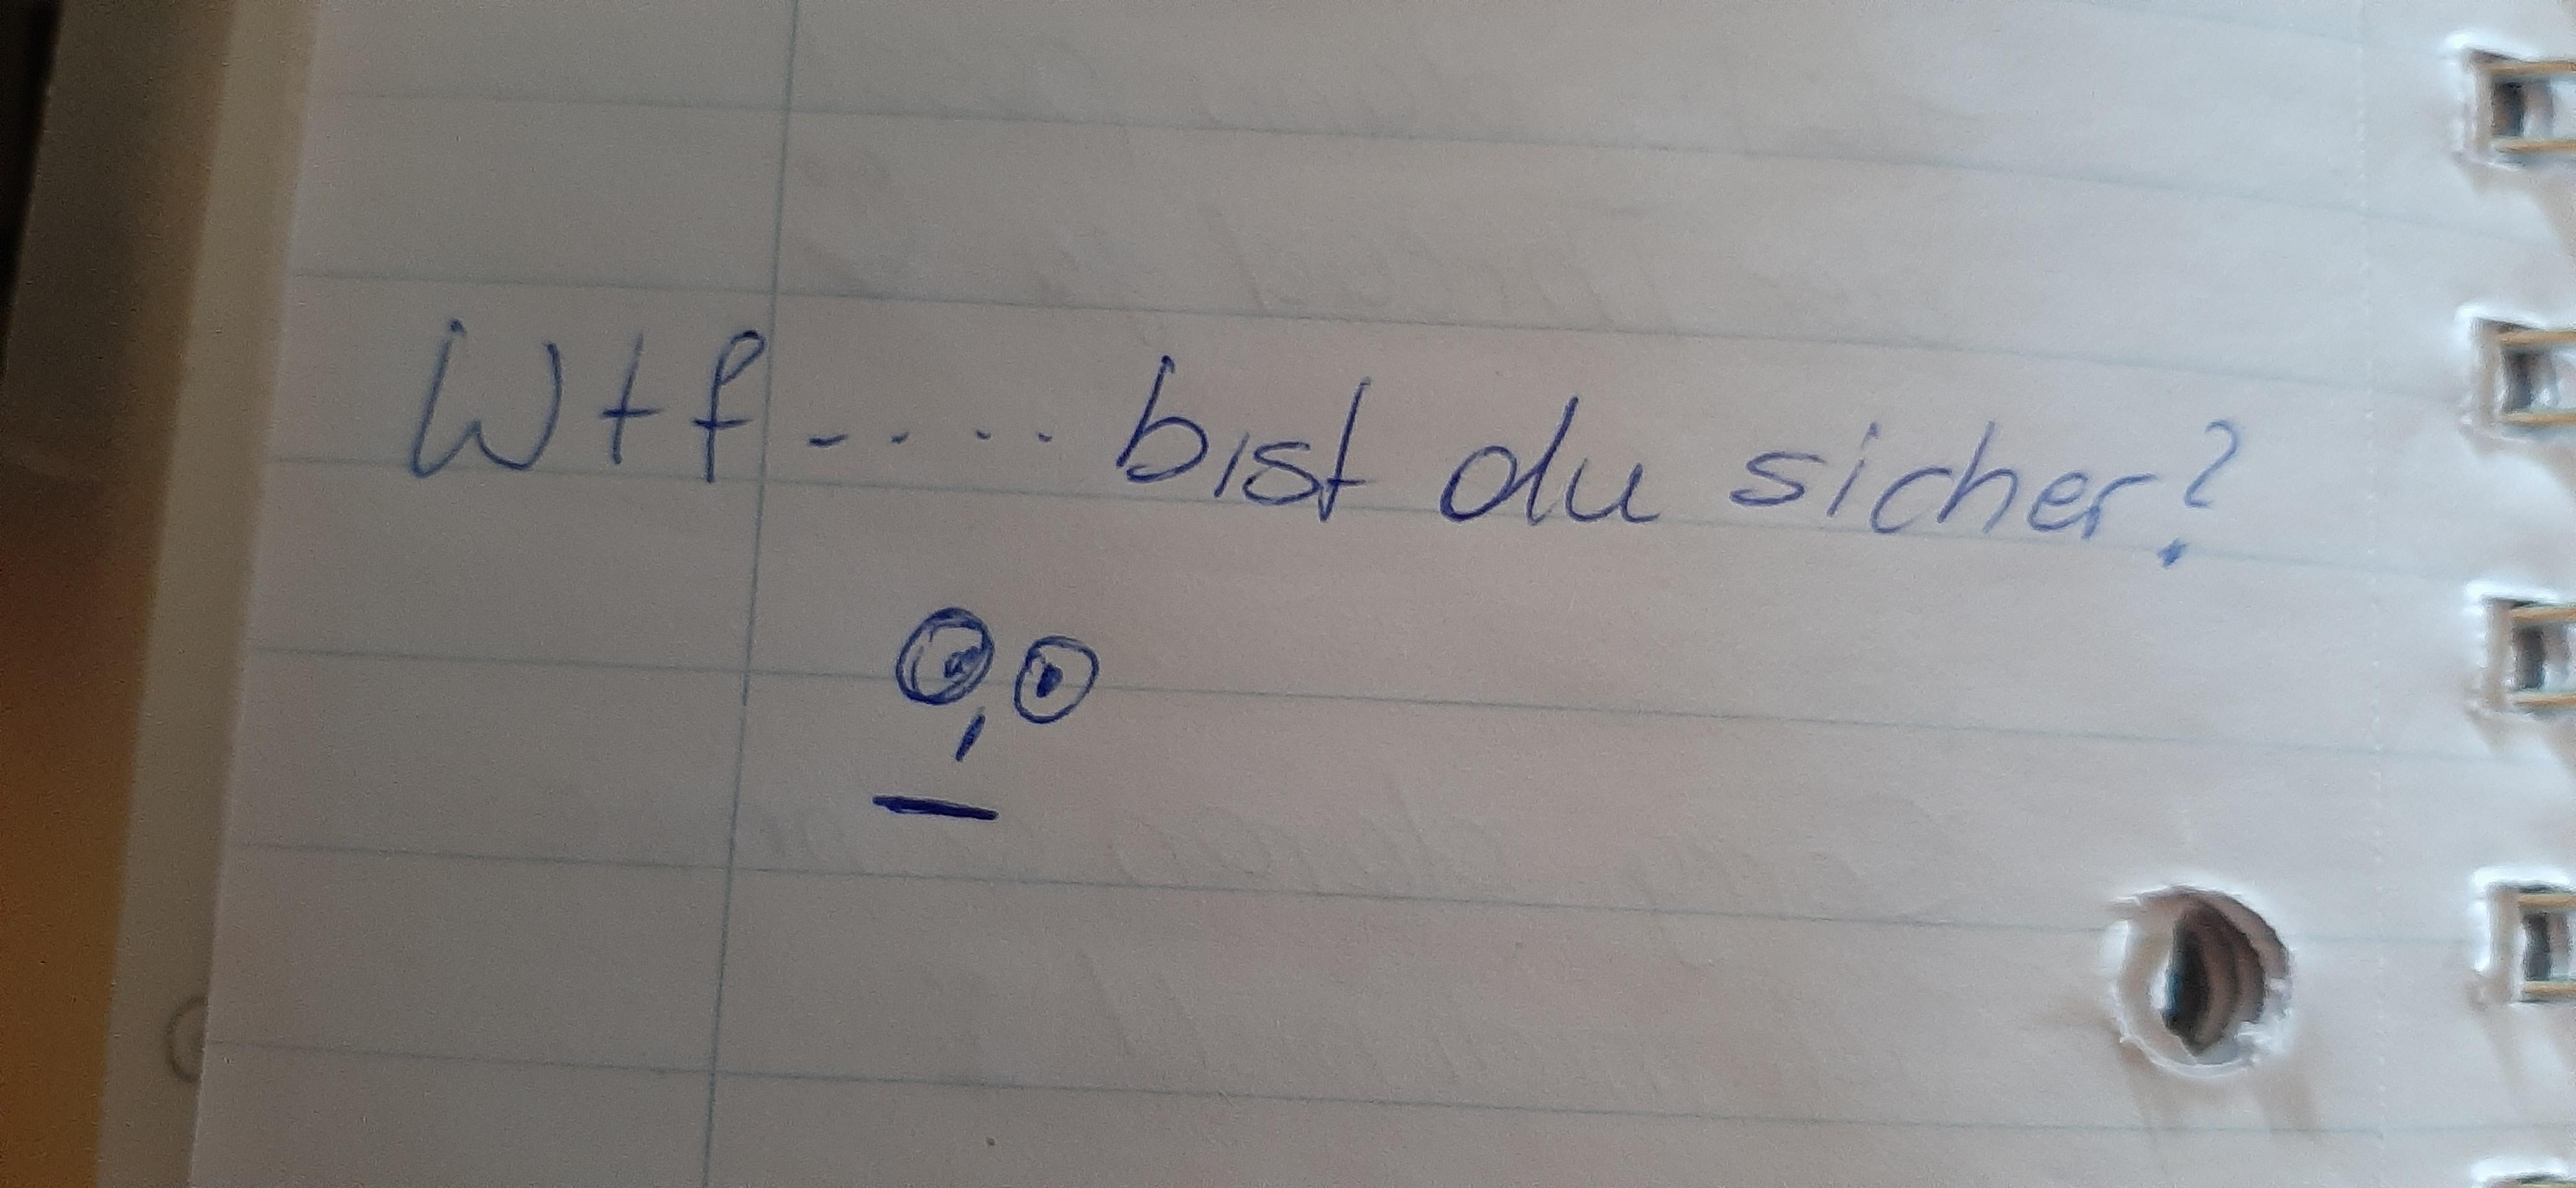 Wtf .... bist du sicher?